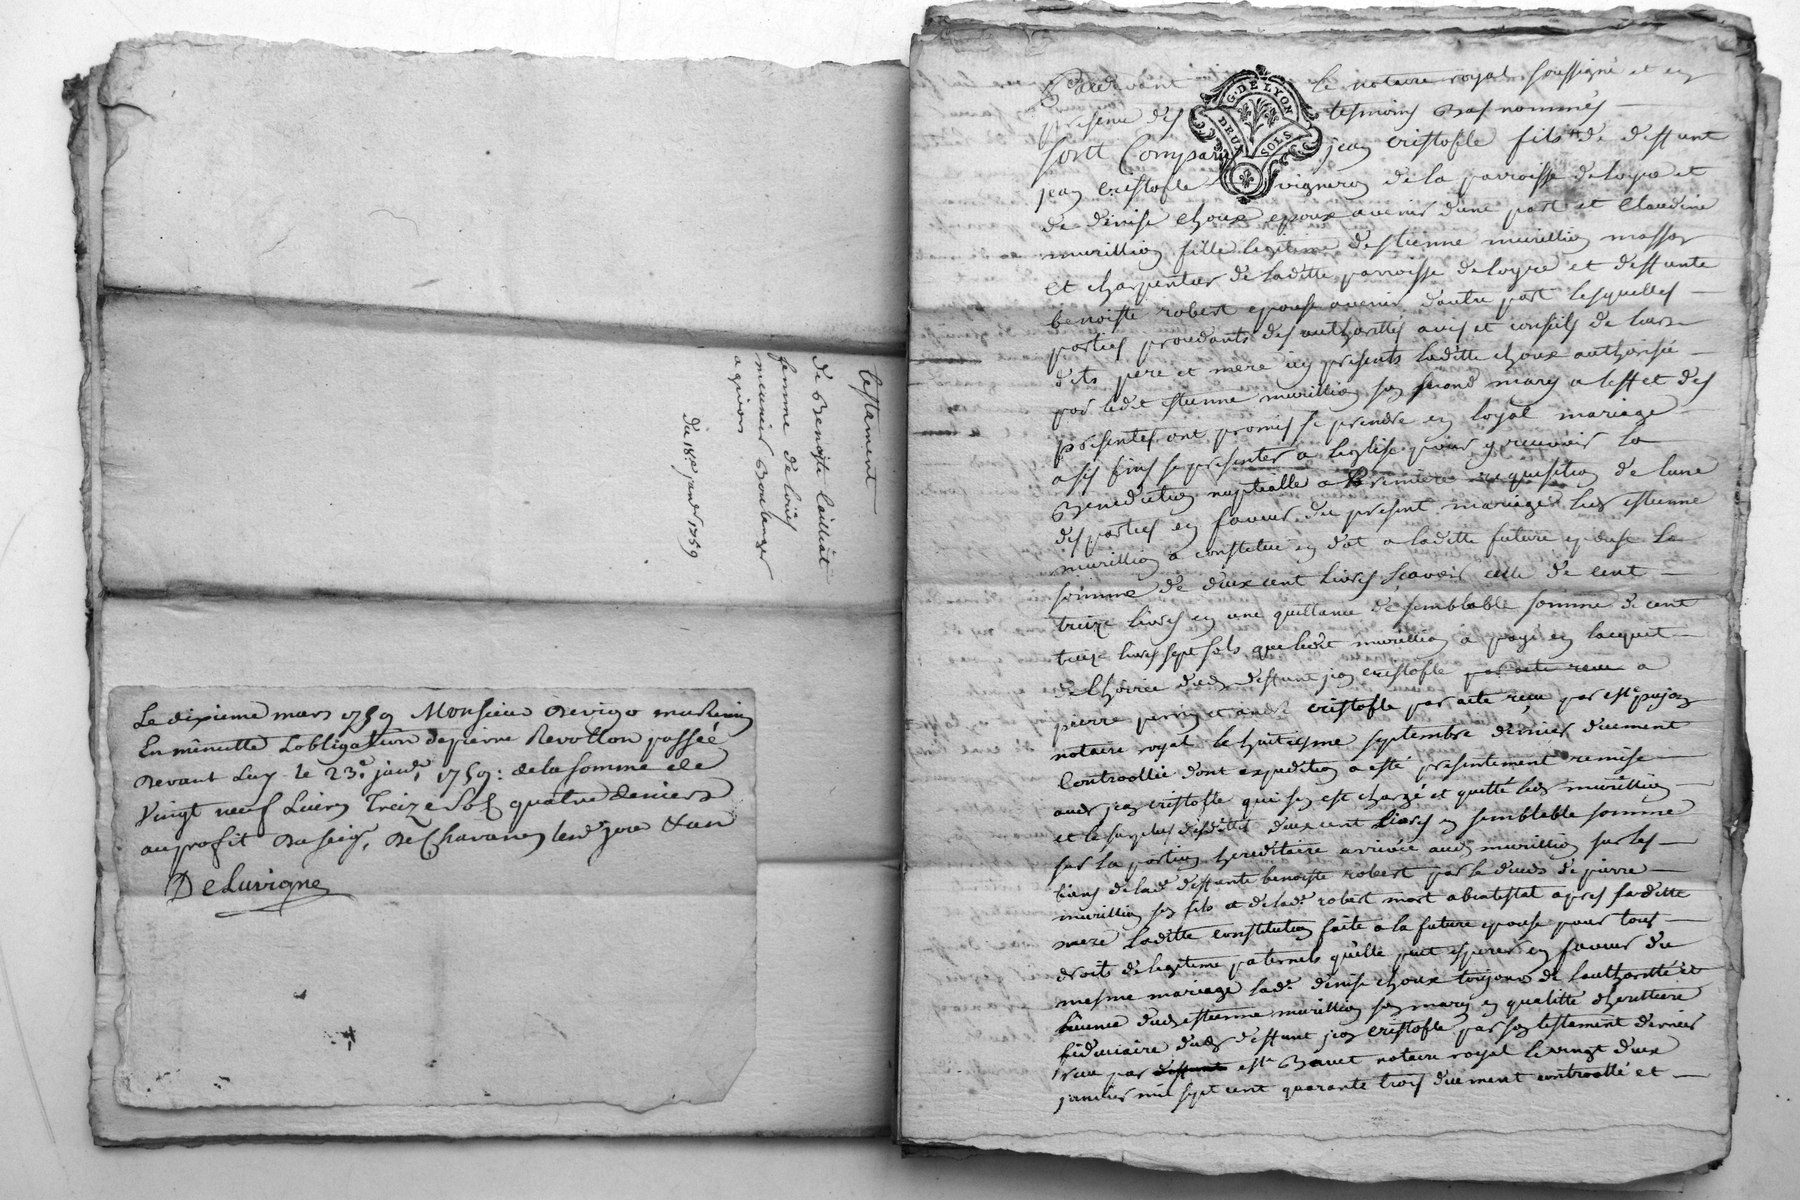 testament
de Benoiste
femme de Loüis
meunier Boulanger
a givors
du 18e janer 1759
Le dixieme mars 1759 Monsieur Devigo
En minutte Lobligation de pierre Revollon passée
devant Luy le 23e janr 1759: de la somme de
Vingt neuf Livres Treize Sols quatre deniers
au profit du sieur De Chavanes les jour & an
DeLuvigne
G. DE LYON
DEUX SOLS
Pardevant le notaire royal soussigné et en
presence des tesmoins Bas nommés
sont Comparu jean cristofle fils de deffunt
jean cristofle vigneron de la parroisse de loyre et
de denise choux epoux avenir d'une part et Claudine
murillion fille legitime d'estienne murillion masson
et charpentier de laditte parroisse de loyre et deffunte
benoiste robert epouse avenir d'autre part lesquelles
parties procedants des authorittés avis et conseils de leurs
dits pere et mere icy presents laditte choux authorisée
par ledit estienne murillion son second mary a leffet des
presentes ont promis se prendre en loyal mariage
a ses fins se presenter a leglise pour y recevoir la
Benediction nuptialle a la premiere requisition de lune
des parties en faveur du present mariage led estienne
murillion a constitué en dot a laditte future epouse la
somme de deux cent livres scavoir celle de cent
treize livres en une quittance de semblable somme de cent
treize livres sept sols que ledit murillion a payé en lacquit
de lhoirie dud deffunt jean cristofle par acte receu a
pierre perrin et andré cristofle par acte receu par estn pujon
notaire royal le huitiesme septembre dernier duement
Controollée dont expedition a esté presentement remise
aud jean cristofle qui sen est chargé et quitte led murillion
et le surplus desdittes deux cent livres en semblable somme
sur la portion hereditaire arrivée aud murillion sur les
biens de lad deffunte benoiste robert par le deceds de pierre
murillion son fils et de lad robert mort abintestat apres saditte
mere laditte constitution faite a la future epouse pour tous
droits de legitime paternels quelle peut esperer en faveur du
mesme mariage lade denise choux toujours de lauthoritté et
licence dud estienne murillion son mary en qualitté dheritiere
fiduciaire dud deffunt jean cristofle par son testament dernier
receu par deffunt estn Bavet notaire royal le vingt deux
janvier mil sept cent quarante trois duement controollé et